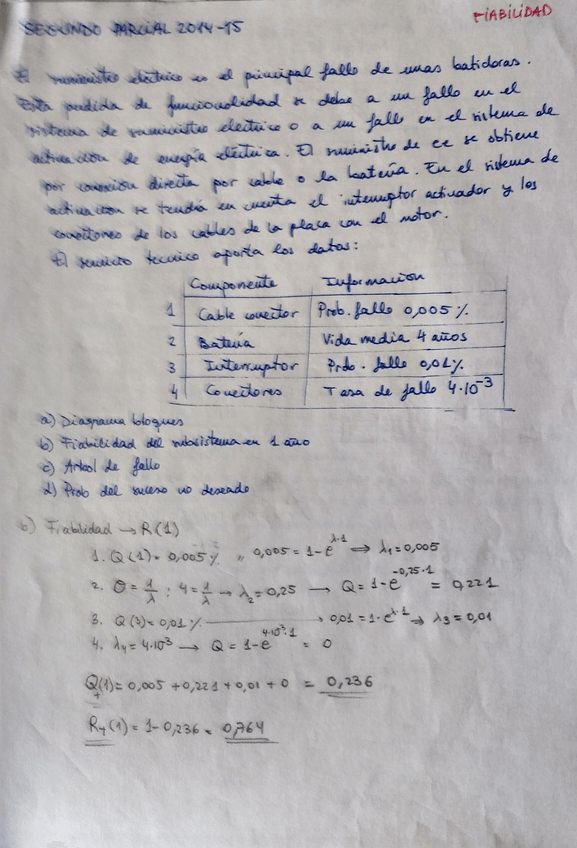 FIABILIDAD
SEGUNDO PARCIAL 2014-15
El suministro eléctrico es el principal fallo de unas batidoras.
Esta perdida de funcionalidad se debe a un fallo en el
sistema de suministro electrico o a un fallo en el sistema de
activación de energía eléctrica. El suministro de ee se obtiene
por conexión directa por cable o la batería. En el sistema de
activacion se tendrá en cuenta el interruptor activador y los
conectores de los cables de la placa con el motor.
El servicio tecnico aporta los datos:
Componente Informacion
1 Cable conector Prob. fallo 0,005 %
2 Batería Vida media 4 años
3 Interruptor Prob. fallo 0,01%
4 Conectores Tasa de fallo 4·10⁻³
a) Diagrama bloques
b) Fiabilidad del subsistema en 1 año
c) Arbol de fallo
d) Prob del suceso no deseado
b) Fiabilidad → R(1)
1. Q(1) = 0,005 % ,, 0,005 = 1-e^λ·1 ⟹ λ₁=0,005
2. Θ = 1/λ ; 4 = 1/λ → λ₂=0,25 → Q = 1-e^-0,25·1 = 0,221
3. Q(3)=0,01 % → 0,01 = 1-e^λ·1 ⟹ λ₃=0,01
4. λ₄=4·10³ → Q = 1-e^4·10³·1 = 0
Q_T(1) = 0,005 + 0,221 + 0,01 + 0 = 0,236
R_T(1) = 1-0,236 = 0,764